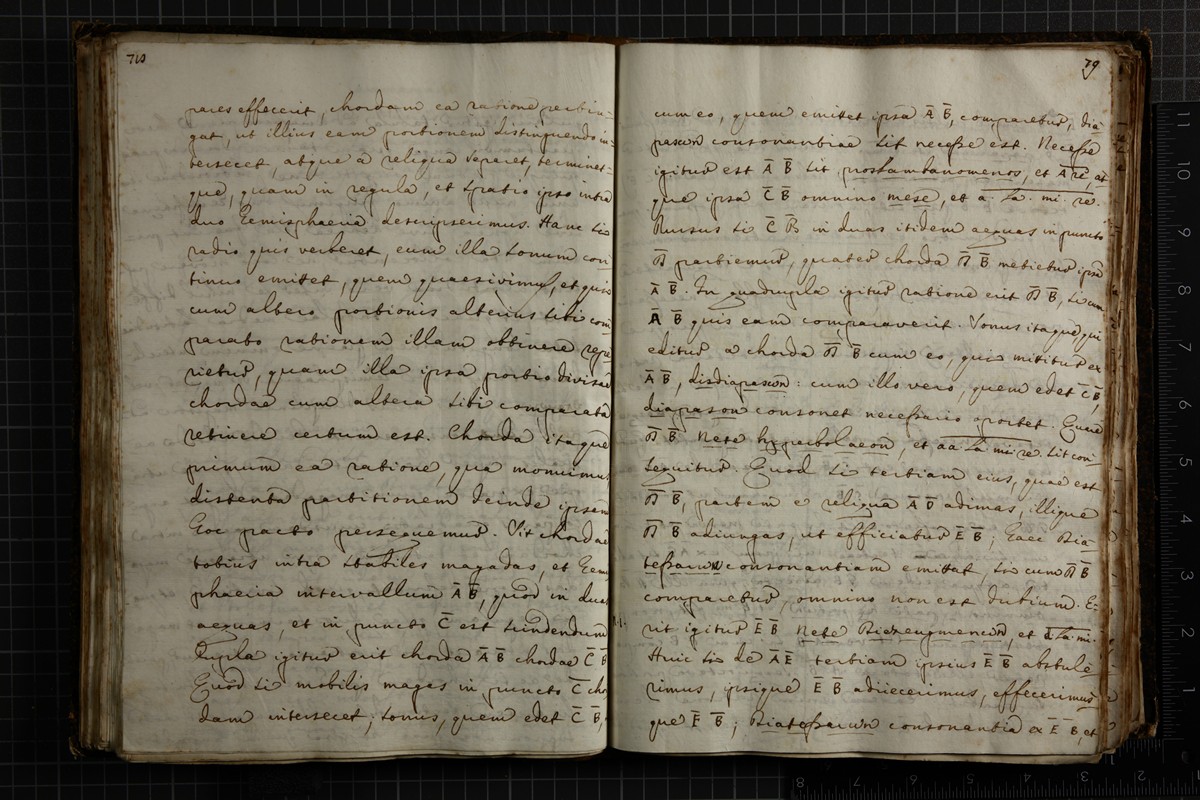 78
pares effecerit, chordam ea ratione pertin-
gat, ut illius eam portionem distinguendo in-
tersecet, atque a reliqua separet, terminet-
que, quam in regula, et spatio ipso intra
duo hemisphaeria descripserimus. Hanc si
radio quis verberet, cum illa sonum con
tinuo emittet, quem quaesivimus, et quis
cum altero portionis alterius sibi com
parato rationem illam obtinere repe
rietur, quam illa ipsa portio divisae
chordae cum altera sibi comparata
retinere certum est. Chorda itaque
primum ea ratione, qua monuimus
distenta partitionem deinde ipsam
hoc pacto persequemur. Sit chordae
totius intra stabiles magadas, et hemi
phaeria intervallum A B, quod in duas
aequas, et in puncto C est scindendum
Dupla igitur erit chorda A B chordae C B
Quod si mobilis mages in puncto C chor
dam intersecet; sonus, quem edet C B,
79
cum eo, quem emittet ipsa A B, comparetur, dia
pason consonantiae sit necesse est. Necesse
igitur est A B sit proslambanomenos, et A re, at
que ipsa C B omnino mese, et a. la. mi. re.
Rursus si C B in duas itidem aequas in puncto
D partiemur, quater chorda D B metietur ipsa
A B. In quadrupla igitur ratione erit D B, si cum
A B quis eam comparaverit. Sonus itaque, qui
editur a chorda D B cum eo, qui mittitur ex
A B, disdiapason: cum illo vero, quem edet C B,
diapason consonet necessario oportet. Quare
D B Nete hyperbolaeon, et aa la mi re. sit con-
sequitur. Quod si tertiam eius, quae est
D B, partem e reliqua A D adimas, illique
D B adiungas, ut efficiatur E B; haec dia-
tessaron consonantiam emittat, si cum D B
comparetur, omnino non est dubium. E-
rit igitur E B Nete diezeugmenon, et
Huic si de A E tertiam ipsius E B abstule
rimus, ipsique E B adiecerimus, effecerimus
que F B; diatessaron consonantia ex E B, et